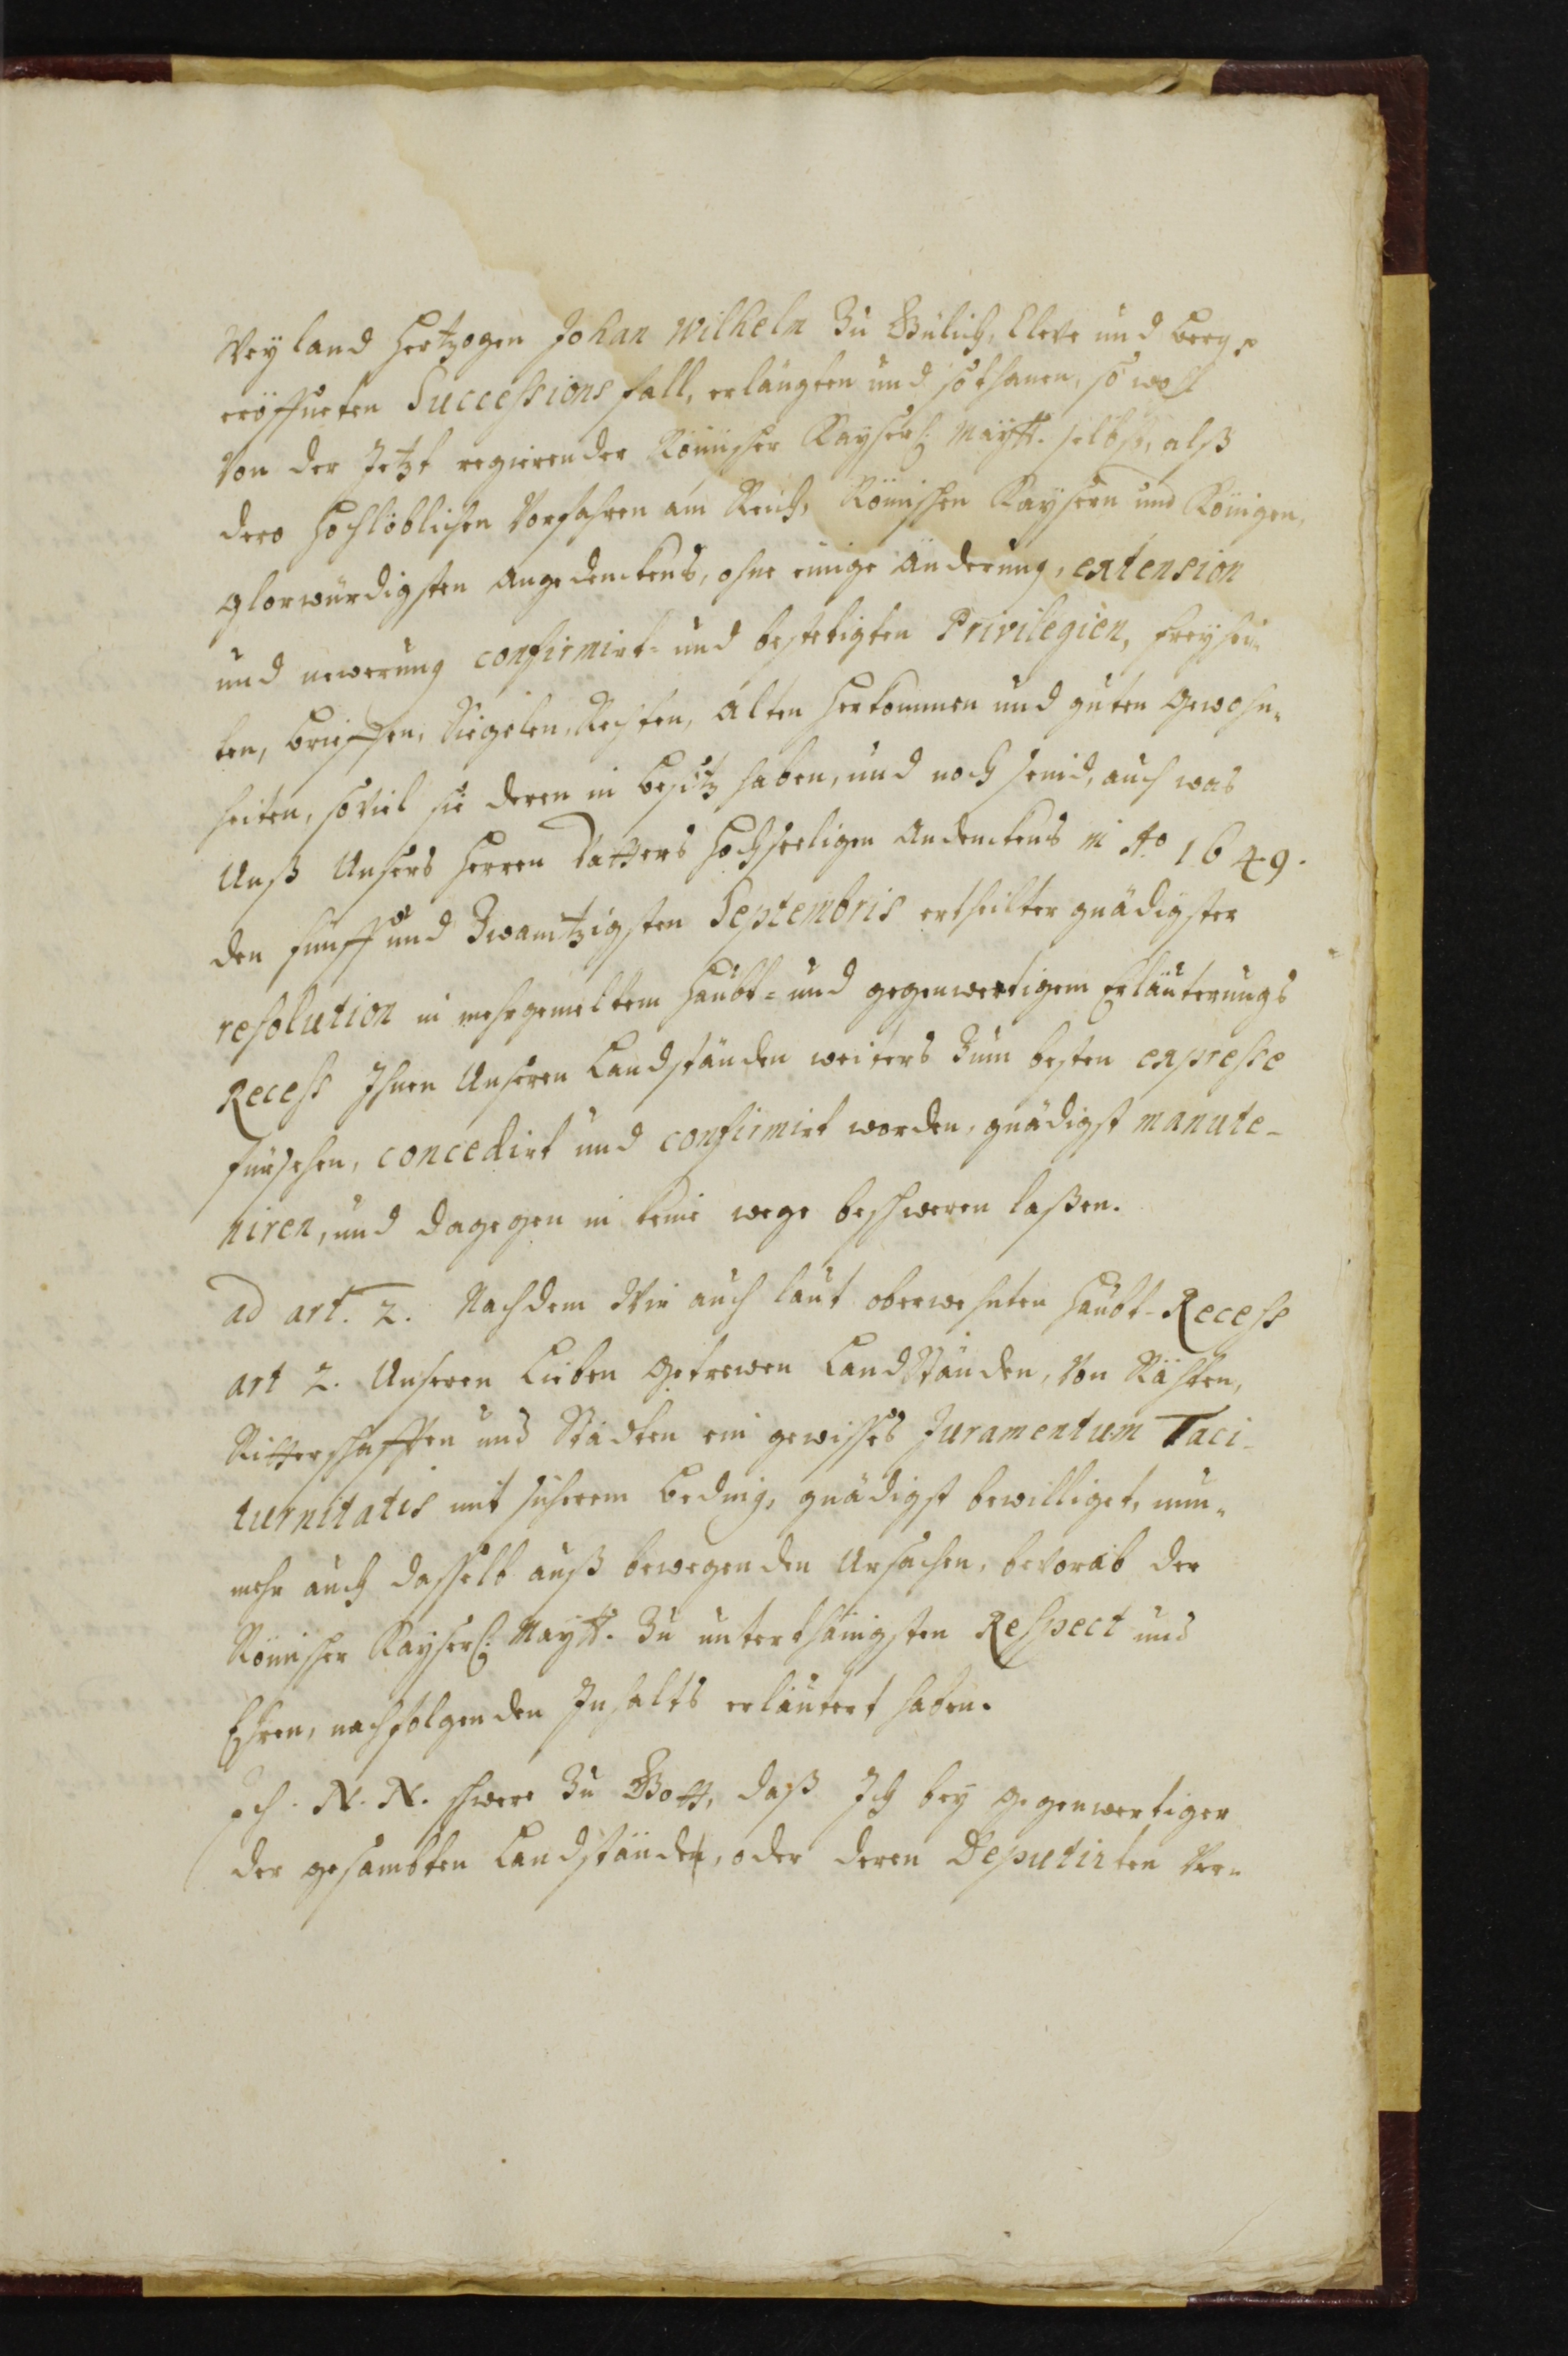 Weyland Hertzogen Johan Wilhelm Zu Gülich, Cleve und Berg p
eröffneten Successions fall, erlangten und sothanen, so wohl
Von der Jetzt regierender Römischer Kayserl: Maytt. selbst, alß
dero Hochlöblichen Vorfahren am Reich, Römischen Kaysern und Königen,
Glorwürdigsten Angedenckens, ohne einige Änderung, extension
und newerung confirmirt- und bestetigten Privilegien, freyhei-
ten, brieffen, Siegelen, Rechten, alten Herkommen und guten Gewohn-
heiten, soviel sie deren in besitz haben, und noch seind, auch was
Unß Unsers Herren Vatters Hochseeligen Andenckens in Ao 1649.
den fünff und Zwantzigsten Septembris ertheilter gnädigster
resolution in mehrgemeltem Haubt- und gegenwertigem Erläuterungs
Recess Ihnen Unseren Landständen weiters Zum besten expresse
fürsehen, concedirt und confirmirt worden, gnädigst manute-
niren, und dagegen in keine wege beschweren laßen.
ad art. 2. Nachdem Wir auch laut oberwehnten Haubt-Recess
art 2. Unseren Lieben Getrewen LandStänden, Von Räthen,
Ritterschafften und Städten ein gewisses Juramentum Taci-
turnitatis mit sicherem beding, gnädigst bewilliget, nun-
mehr auch dasselb auß bewegenden Ursachen, bevorab der
Römischer Kayserl: Maytt. Zu unterthänigsten Respect und
Ehren, nachfolgenden Inhalts erläutert haben.
Ich. N. N. schwere Zu Gott, daß Ich bey gegenwertiger
der gesambten Landstände, oder deren Deputirten Ver-